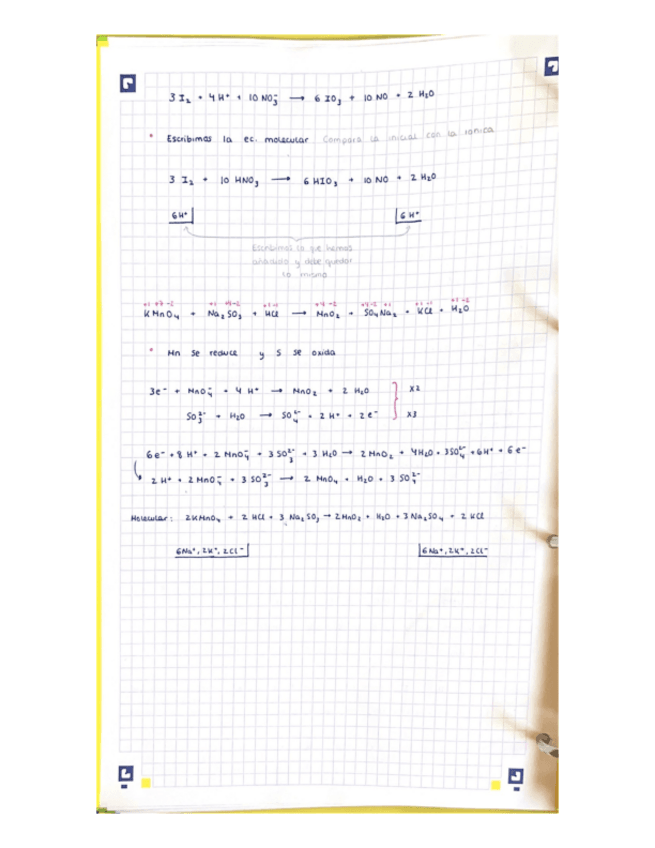 3 I₂ + 4 H⁺ + 10 NO₃⁻ → 6 IO₃ + 10 NO + 2 H₂O
* Escribimos la ec. molecular Compara la inicial con la iónica
3 I₂ + 10 HNO₃ → 6 HIO₃ + 10 NO + 2 H₂O
6 H⁺ 6 H⁺
Escribimos lo que hemos
añadido y debe quedar
lo mismo
+1 +7 -2 +1 +4 -2 +1 -1 +4 -2 +6 -2 +1 +1 -1 +1 -2
KMnO₄ + Na₂SO₃ + HCl → MnO₂ + SO₄Na₂ + KCl + H₂O
* Mn se reduce y S se oxida
3e⁻ + MnO₄⁻ + 4 H⁺ → MnO₂ + 2 H₂O x2
SO₃²⁻ + H₂O → SO₄²⁻ + 2 H⁺ + 2e⁻ x3
6e⁻ + 8 H⁺ + 2 MnO₄⁻ + 3 SO₃²⁻ + 3 H₂O → 2 MnO₂ + 4H₂O + 3SO₄²⁻ + 6H⁺ + 6e⁻
2 H⁺ + 2 MnO₄⁻ + 3 SO₃²⁻ → 2 MnO₄ + H₂O + 3 SO₄²⁻
Molecular: 2KMnO₄ + 2 HCl + 3 Na₂SO₃ → 2MnO₂ + H₂O + 3 Na₂SO₄ + 2 KCl
6Na⁺, 2K⁺, 2Cl⁻ 6Na⁺, 2K⁺, 2Cl⁻